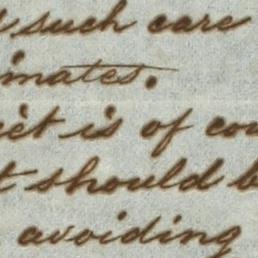 such care
imates.
iet is of cou
t should b
avoiding